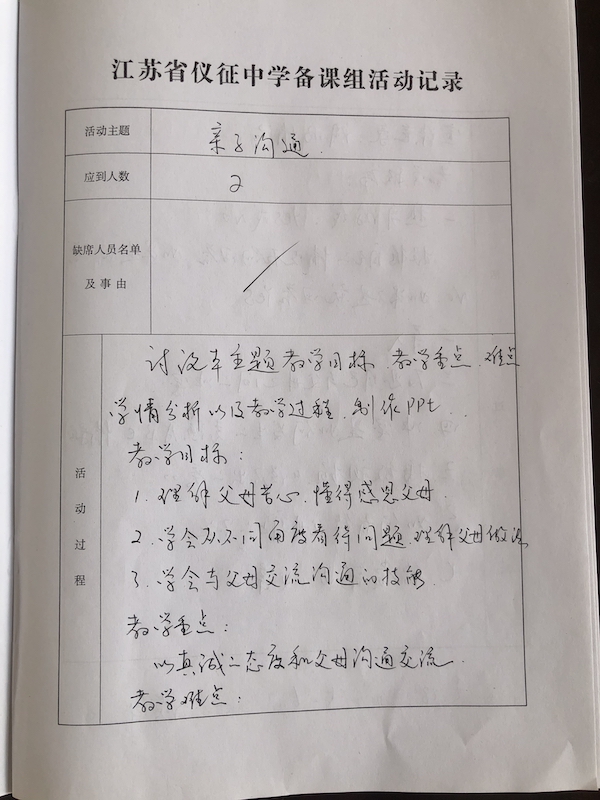 江苏省仪征中学备课组活动记录
活动主题 亲子沟通.
应到人数 2
缺席人员名单
及事由
活动过程
讨论本主题教学目标、教学重点、难点
学情分析以及教学过程、制作PPt.
教学目标：
1、理解父母苦心、懂得感恩父母.
2、学会从不同角度看待问题、理解父母做法
3、学会与父母交流沟通的技能.
教学重点：
以真诚之态度和父母沟通交流.
教学难点：